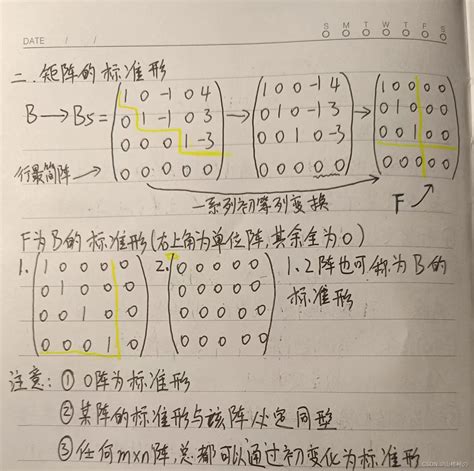 S M T W T F S
DATE / /
二. 矩阵的标准形
B → B5 = (1 0 -1 0 4 → (1 0 0 -1 4 → (1 0 0 0 0
0 1 -1 0 3 0 1 0 -1 3 0 1 0 0 0
0 0 0 1 -3 0 0 1 0 -3 0 0 1 0 0
行最简阵 → 0 0 0 0 0) 0 0 0 0 0) 0 0 0 0 0)
一系列初等列变换 F
F为B的标准形(右上角为单位阵,其余全为0)
1. (1 0 0 0 0 2. (0 0 0 0 0 1、2阵也可称为B的
0 1 0 0 0 0 0 0 0 0 标准形
0 0 1 0 0 0 0 0 0 0
0 0 0 1 0) 0 0 0 0 0)
注意: ① 0阵为标准形
② 某阵的标准形与该阵必定同型
③ 任何m×n阵总都可以通过初变化为标准形